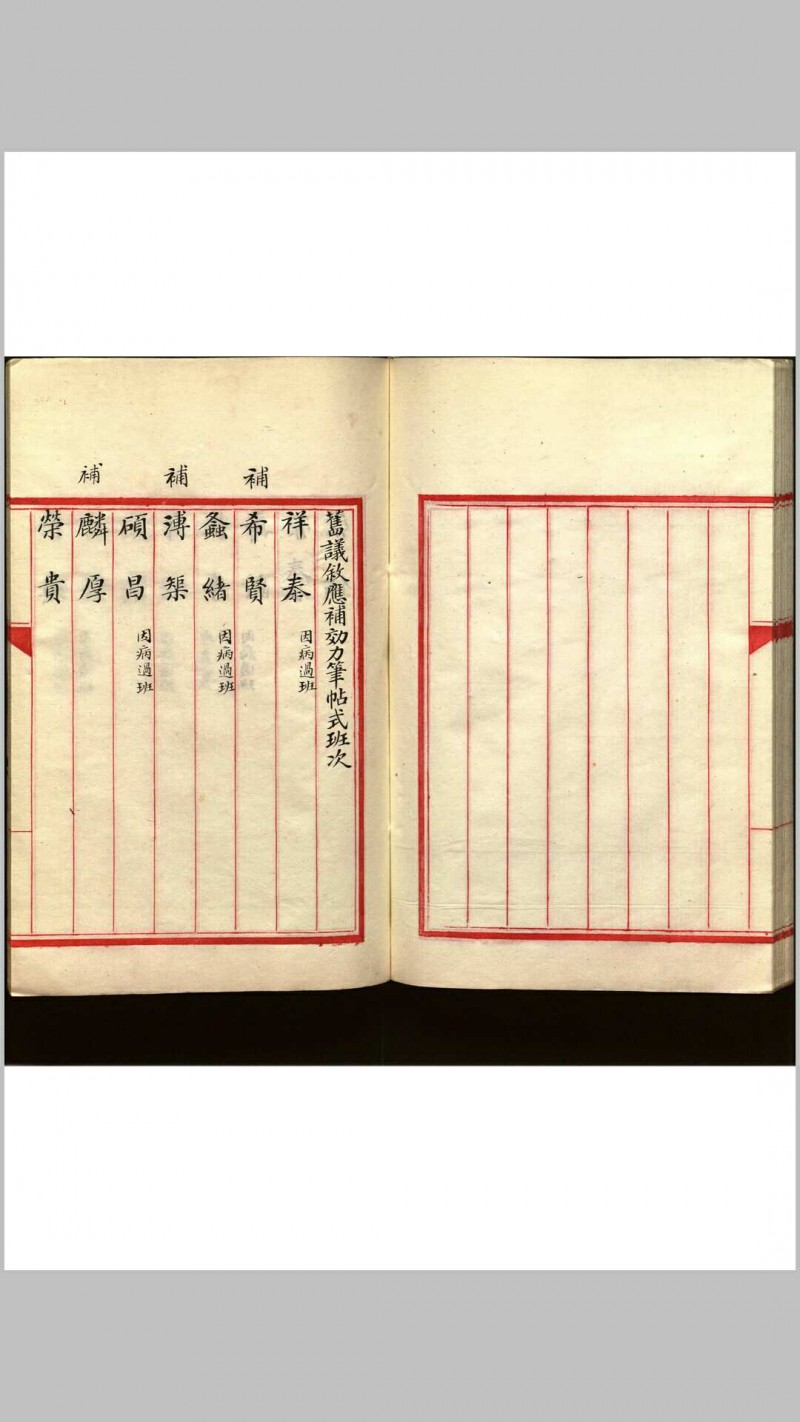 舊議敘應補効力筆帖式班次
祥泰 因病過班
補 希賢
螽緒 因病過班
補 溥榘
碩昌 因病過班
補 麟厚
榮貴